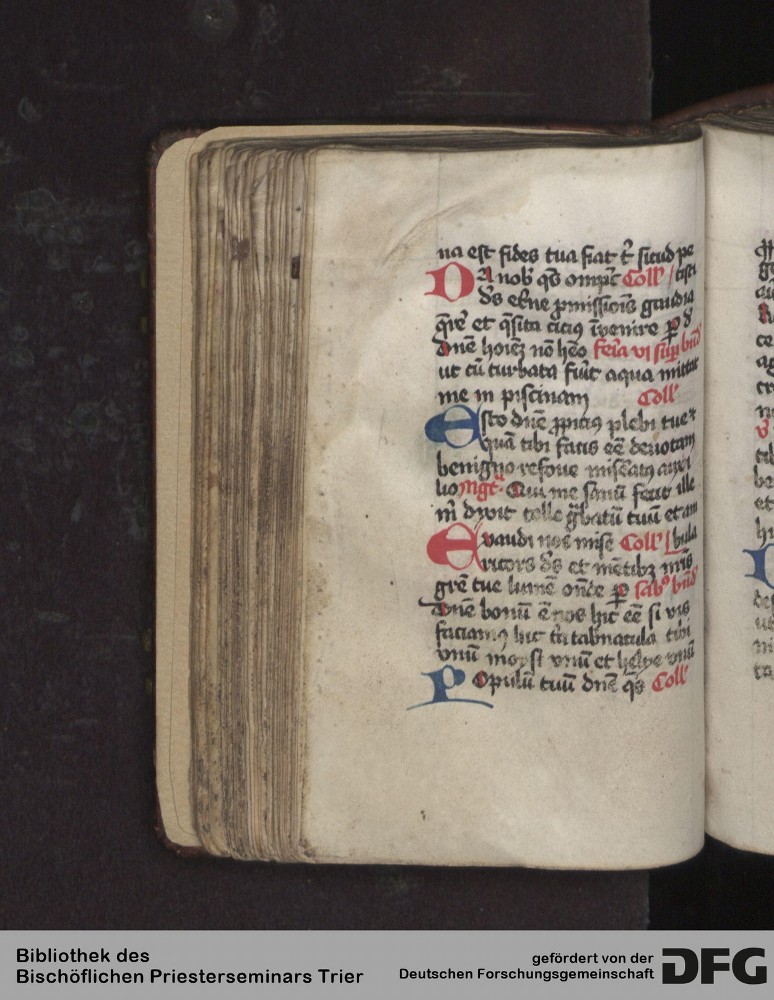 na est fides tua fiat t̄ sicud pe
DA nob̄ qs̄ omp̄c Coll̄ / tisti
ds̄ et̄ne ꝓmissiōis gaudia
q̄rē et q̄sita citiꝰ īvenire ꝑ d̄
dn̄e hoiēz nō hēo fer̄ia vi sup̄ bn̄d
ut cū turbata fūīt aqua mittat
me in piscinam Coll̄
Esto dn̄e ꝓpiciꝰ plebi tue ⁊
quā tibi facis eē deuotam
benigno refoue misēatꝰ auxi
lio Mgt̄ Qui me sanū fecit ille
m̄ dixit tolle g̃batū tuū et am
Exaudi nos mise Coll̄ / bula
ricors ds̄ et mētibꝫ nr̄is
gr̄e tue lumē on̄de ꝑ sab̄o bn̄d
Dn̄e bonū ē nos hic eē si vis
faciamꝰ hic tr̄ia tabnacula tibi
vnū moysi vnū et helye vnū
Populū tuū dn̄e q̄s Coll̄
Bibliothek des
Bischöflichen Priesterseminars Trier
gefördert von der
Deutschen Forschungsgemeinschaft
DFG